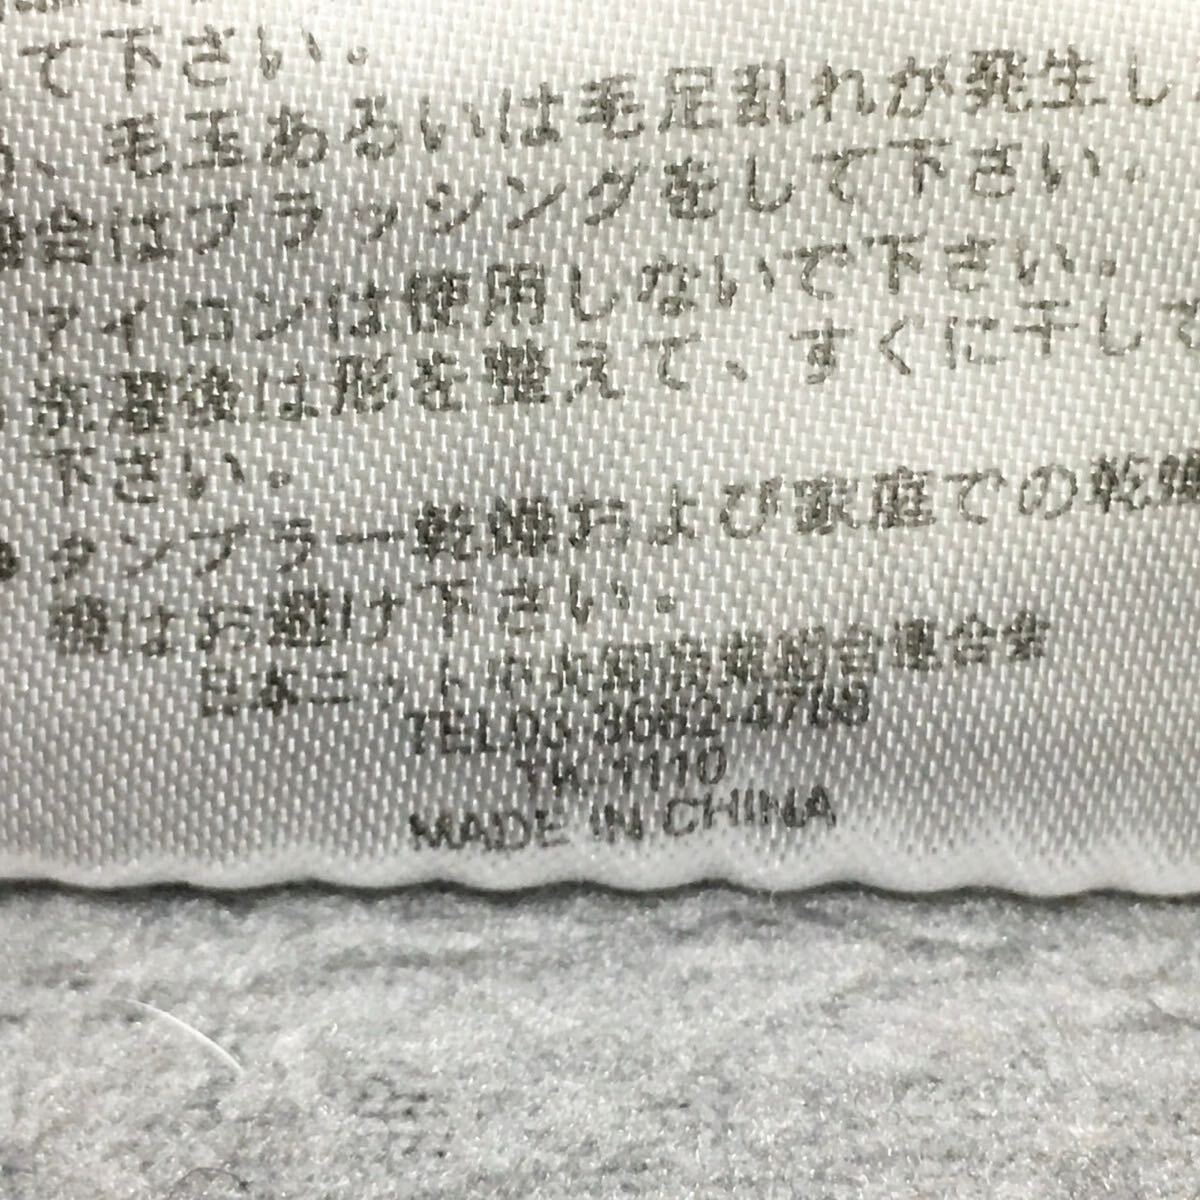 て下さい。
、毛玉あるいは毛足乱れが発生し
場合はブラッシングをして下さい。
アイロンは使用しないで下さい。
洗濯後は形を整えて、すぐに干して
下さい。
●タンブラー乾燥および家庭での乾燥
機はお避け下さい。
日本ニット中央卸商業組合連合会
TEL03-3662-4706
TK-1110
MADE IN CHINA